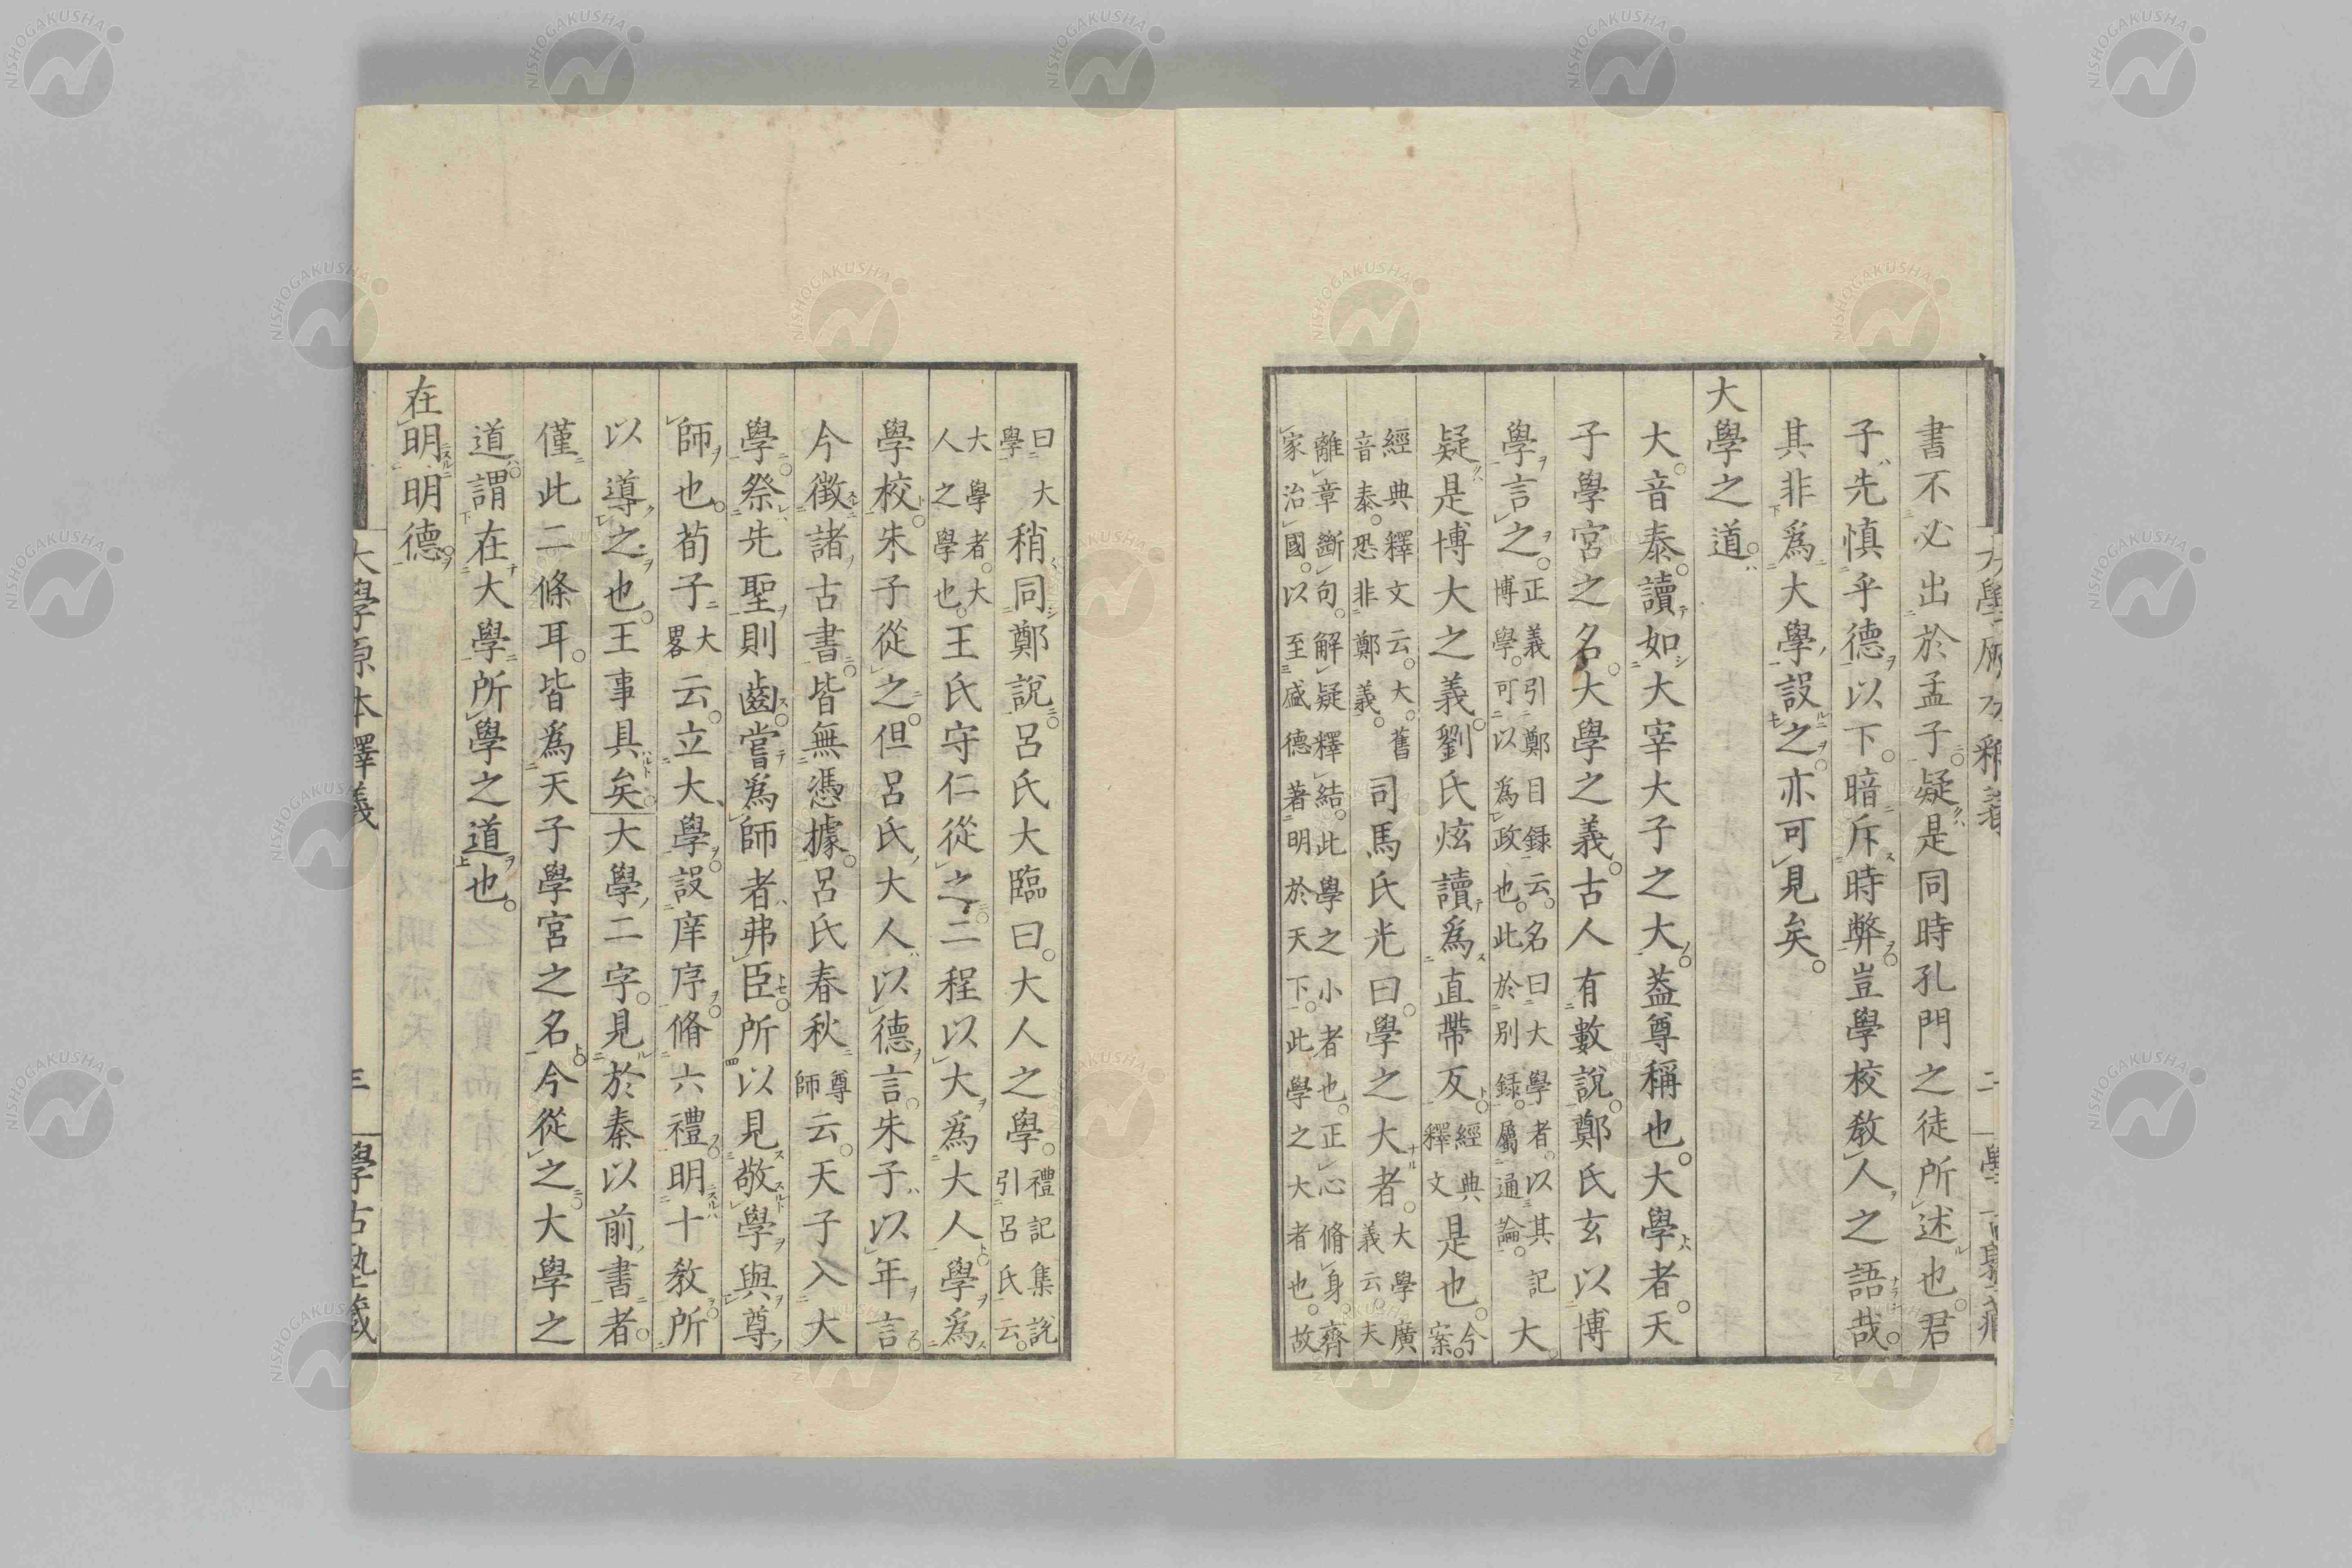 書不必出於孟子疑是同時孔門之徒所述也君
子先慎乎德以下暗斥時弊豈學校教人之語哉
其非爲大學設之亦可見矣
大學之道
大音泰讀如大宰大子之大蓋尊稱也大學者天
子學宮之名大學之義古人有數說鄭氏玄以博
學言之正義引鄭目録云名曰大學者以其記博學可以爲政也此於別録屬通論大
疑是博大之義劉氏炫讀爲直帶反經典釋文是也今案
經典釋文云大舊音泰恐非鄭義司馬氏光曰學之大者大學廣義云夫
離章斷句解疑釋結此學之小者也正心脩身齊
家治國以至盛德著明於天下此學之大者也故
曰大學稍同鄭說呂氏大臨曰大人之學禮記集說引呂氏云
大學者大人之學也王氏守仁從之二程以大爲大人學爲
學校朱子從之但呂氏大人以德言朱子以年言
今徵諸古書皆無憑據呂氏春秋尊師云天子入大
學祭先聖則齒嘗爲師者弗臣所以見敬學與尊
師也荀子大畧云立大學設庠序脩六禮明十教所
以導之也王事具矣大學二字見於秦以前書者
僅此二條耳皆爲天子學宮之名今從之大學之
道謂在大學所學之道也
在明明德
大學原本釋義
三
學古塾藏
NISHOGAKUSHA